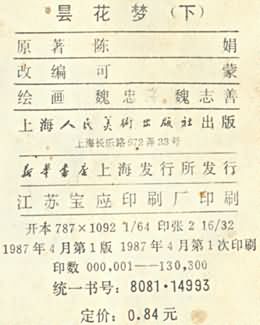 昙花梦(下)
原著 陈娟
改编 可蒙
绘画 魏忠善 魏志善
上海人民美术出版社出版
上海长乐路672弄33号
新华书店上海发行所发行
江苏宝应印刷厂印刷
开本787×1092 1/64 印张 2 16/32
1987年4月第1版 1987年4月第1次印刷
印数 000,001——130,300
统一书号: 8081·14993
定价: 0.84元